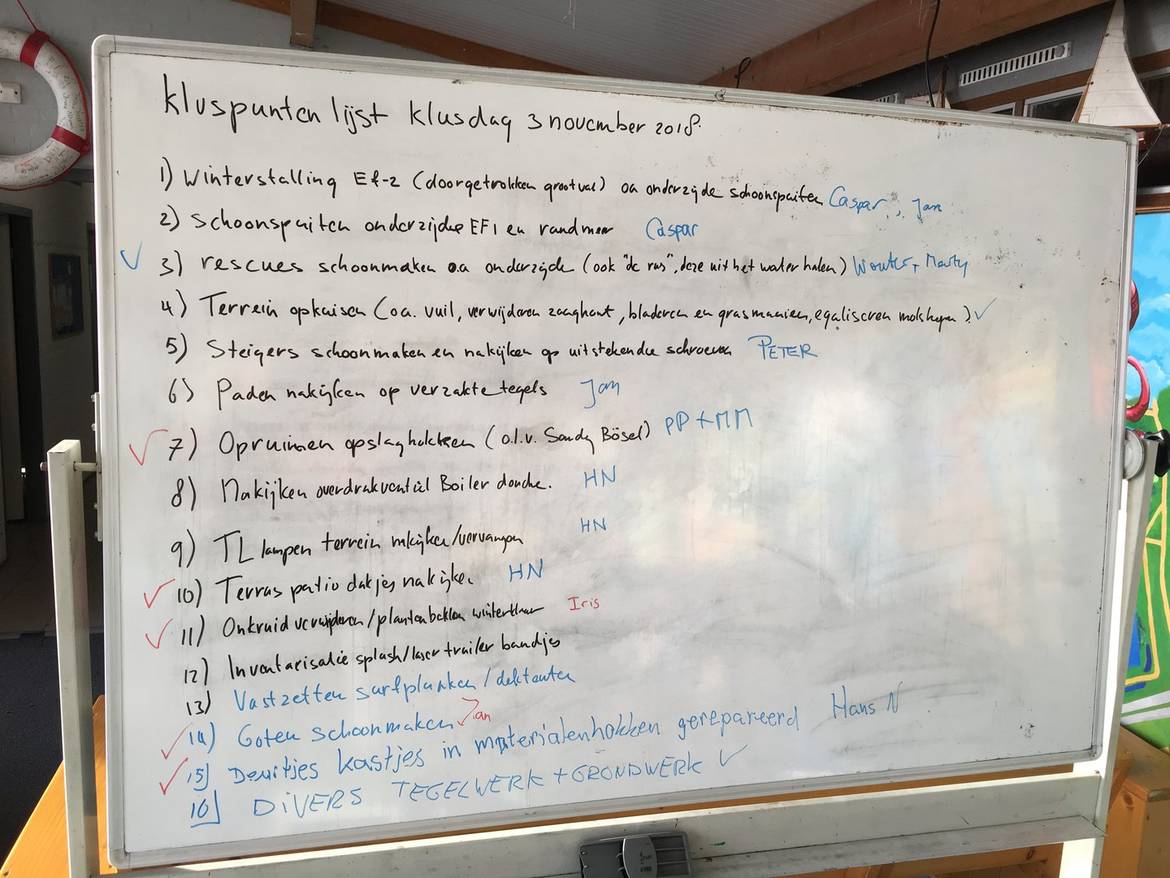 Kluspunten lijst klusdag 3 november 2018.
1) Winterstalling Ef-2 (doorgetrokken grootval) oa onderzijde schoonspuiten Caspar, Jan
2) Schoonspuiten onderzijde EF1 en randmeer Caspar
✓ 3) rescues schoonmaken o.a onderzijde (ook "de rus", deze uit het water halen) Wouter + Marty
4) Terrein opkuisen (o.a. vuil, verwijderen zaaghout, bladeren en grasmaaien, egaliseren molshopen). ✓
5) Steigers schoonmaken en nakijken op uitstekende schroeven PETER
6) Paden nakijken op verzakte tegels Jan
✓ 7) Opruimen opslaghokken (o.l.v. Sandy Bösel) PP + MM
8) Nakijken overdrukventiel Boiler douche. HN
9) TL lampen terrein nakijken/vervangen HN
✓ 10) Terras patio dakjes nakijken HN
✓ 11) Onkruid verwijderen/plantenbakken winterklaar Iris
12) Inventarisatie splash/laser trailer bandjes
13) Vastzetten surfplanken/dektenten
✓ 14) Goten schoonmaken Jan
✓ 15) Deurtjes kastjes in materialenhokken gerepareerd Hans N
16) DIVERS TEGELWERK + GRONDWERK ✓